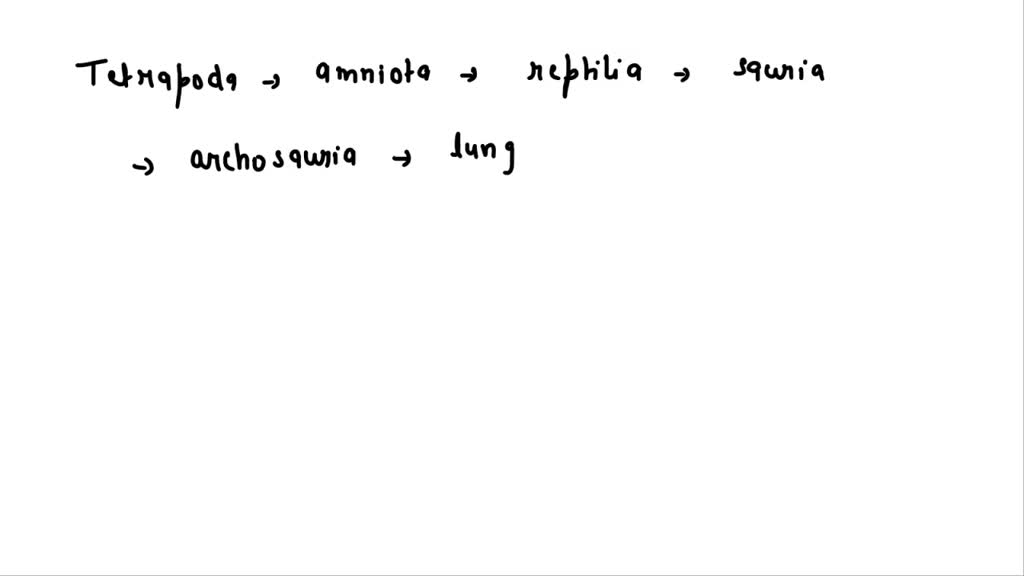 Tetrapoda → amniota → reptilia → sauria
→ archosauria → lung